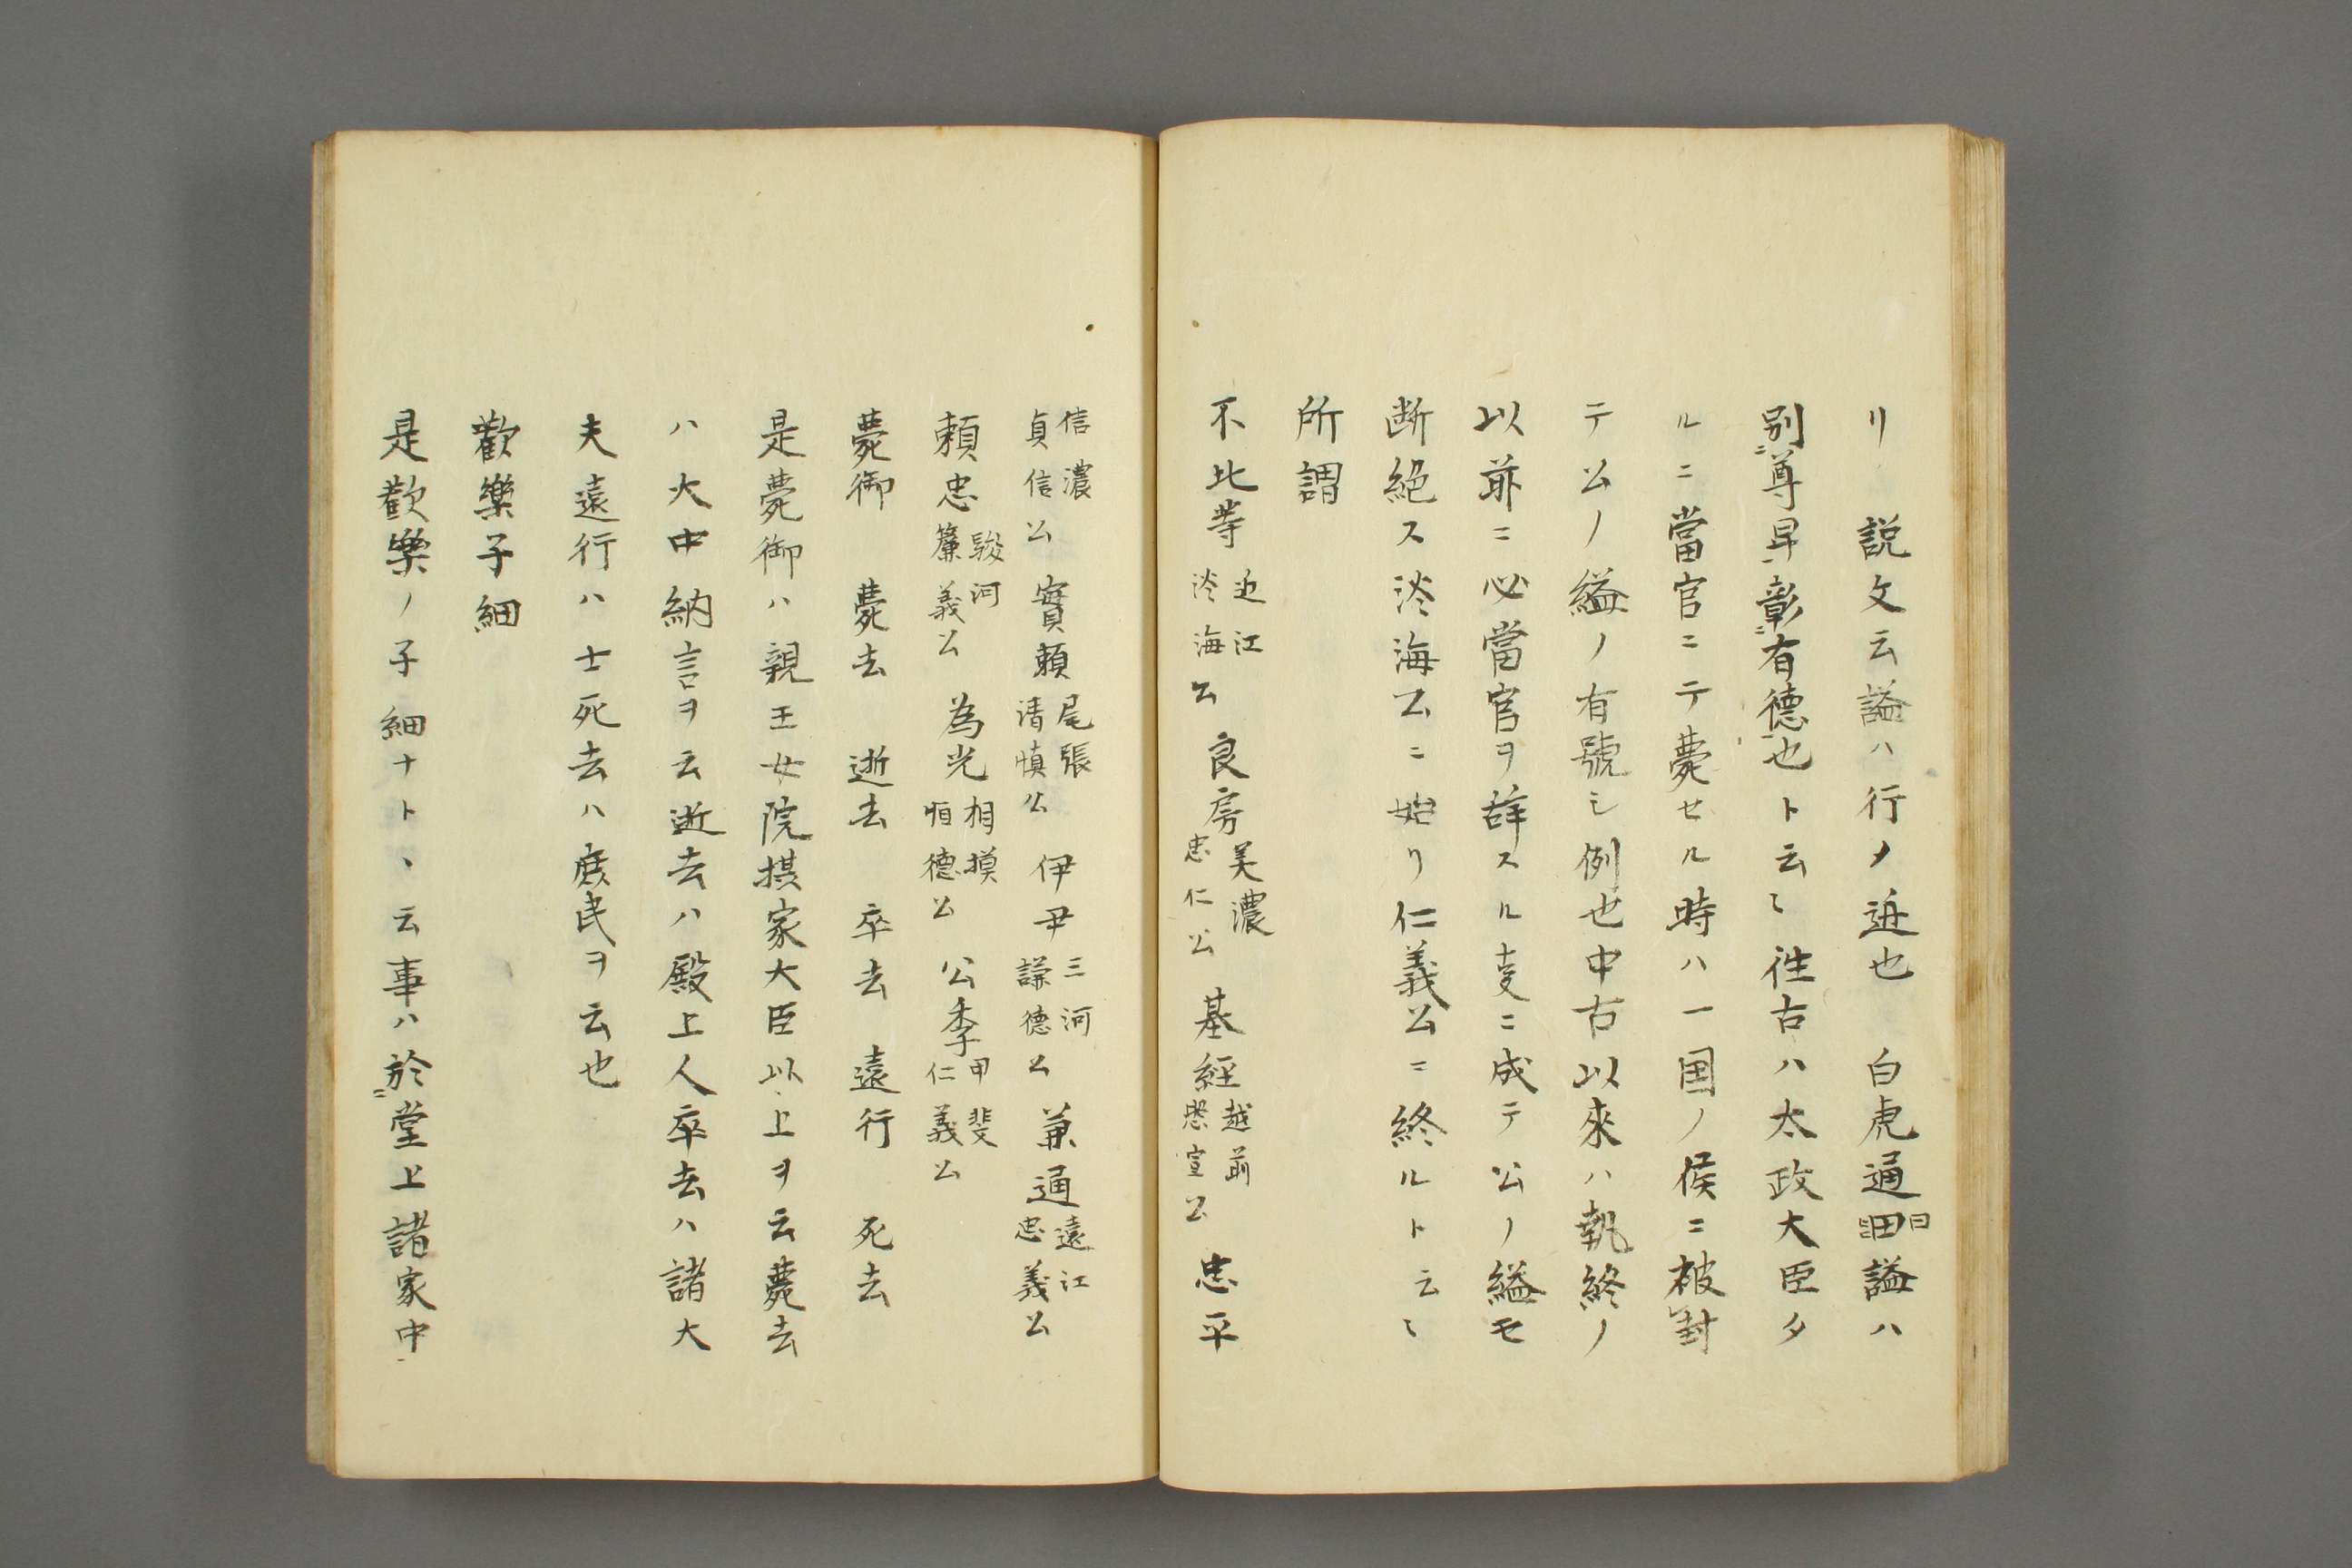 リ 説文云謚ハ行ノ迹也 白虎通曰謚ハ
別尊卑彰有德也ト云〻徃古ハ太政大臣タ
ルニ當官ニテ薨セル時ハ一国ノ侯ニ被封
テ公ノ縊ノ有號シ例也中古以來ハ執終ノ
以前ニ必當官ヲ辞スル叓ニ成テ公ノ縊モ
断絶ス淡海公ニ始リ仁義公ニ終ルト云〻
所謂
不比等 近江 淡海公 良房 美濃 忠仁公 基経 越前 昭宣公 忠平
信濃 貞信公 實頼 尾張 清慎公 伊尹 三河 謙德公 兼通 遠江 忠義公
頼忠 駿河 簾義公 為光 相摸 恒德公 公季 甲斐 仁義公
薨御 薨去 逝去 卒去 遠行 死去
是薨御ハ親王女院摂家大臣以上ヲ云薨去
ハ大中納言ヲ云逝去ハ殿上人卒去ハ諸大
夫遠行ハ士死去ハ庶民ヲ云也
歡樂子細
是歡樂ノ子細ナト丶云事ハ於堂上諸家中